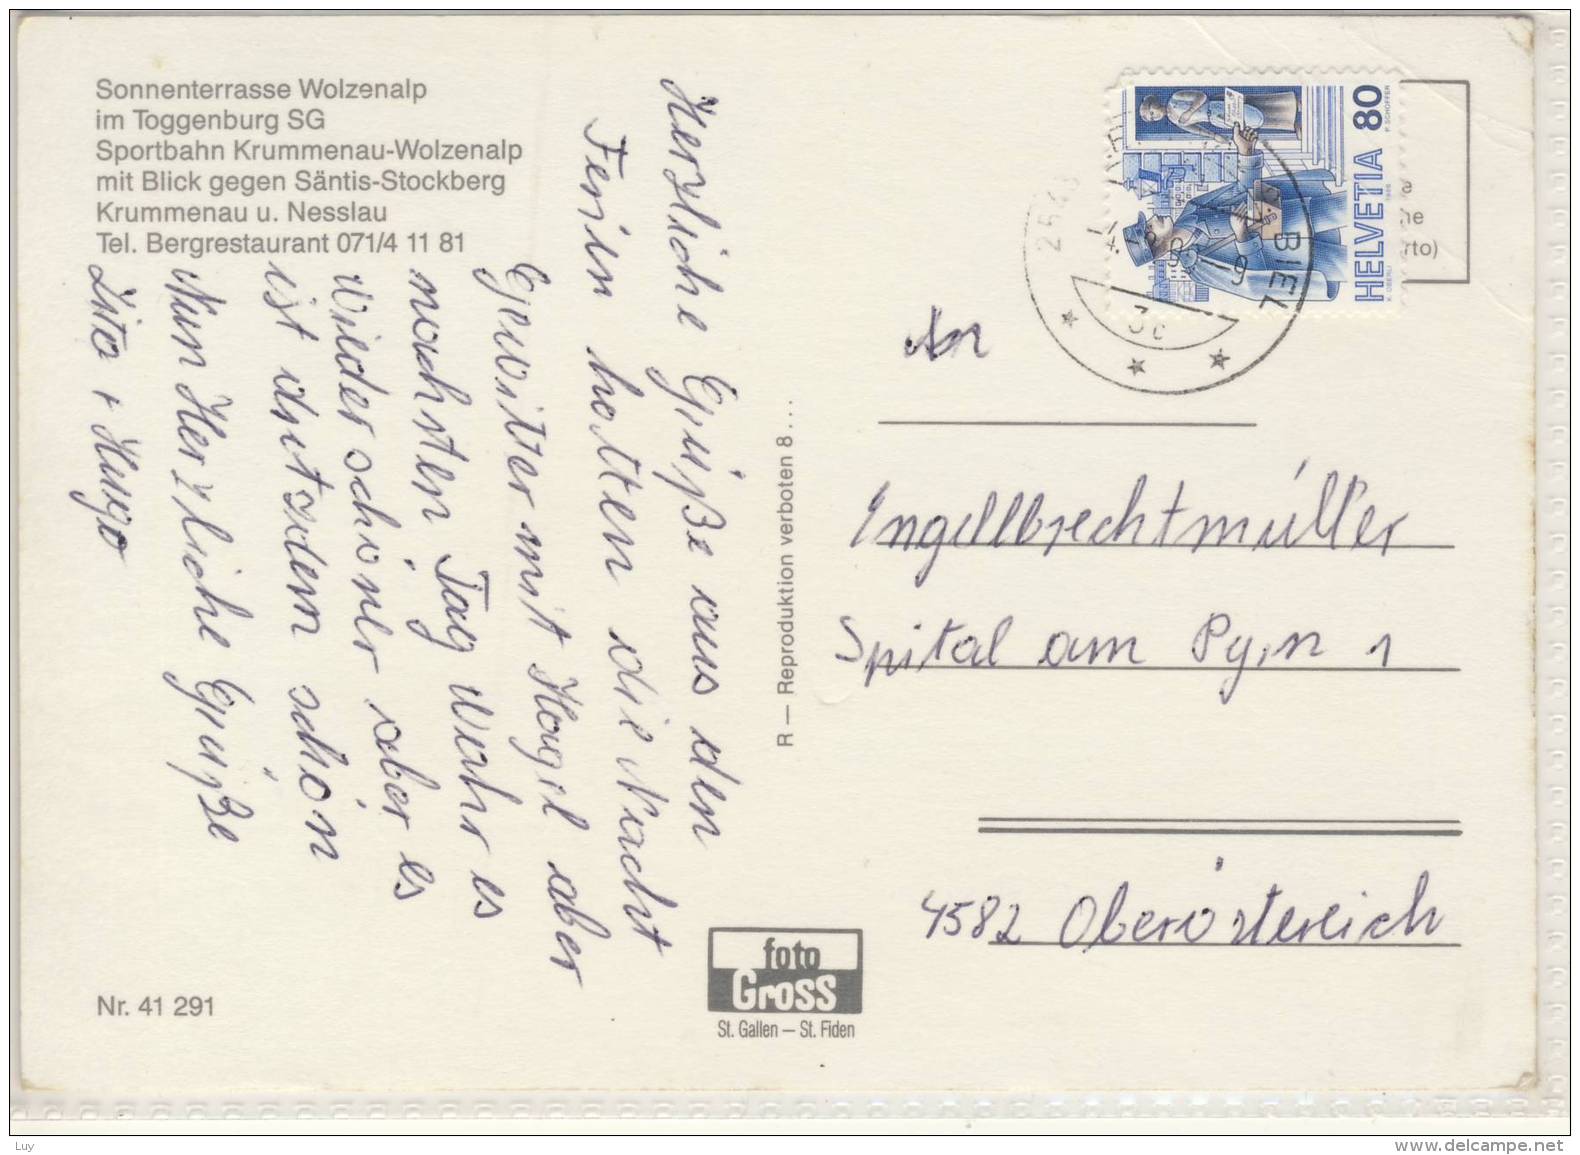 Sonnenterrasse Wolzenalp
im Toggenburg SG
Sportbahn Krummenau-Wolzenalp
mit Blick gegen Säntis-Stockberg
Krummenau u. Nesslau
Tel. Bergrestaurant 071/4 11 81
Herzliche Grüße aus den
Ferien hatten die Nacht
Gewitter mit Hagel aber
nachsten Tag wahr es
wider schöner aber es
ist drotsdem schön
Nun Herzliche Grüße
Zita + Hugo
Nr. 41 291
R — Reproduktion verboten 8...
foto
Gross
St. Gallen – St. Fiden
80
HELVETIA
P. SCHOPFER
K. OBERLI
1986
BIEL
rto)
An
Engellbrechtmüller
Spital am Pyrn 1
4582 Oberöstereich
Luy
www.delcampe.net